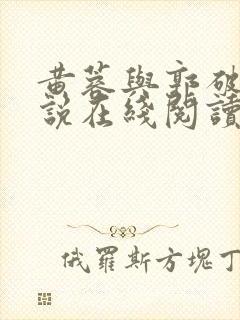 黄蓉與郭破
説在綫閱讀
俄羅斯方塊丁